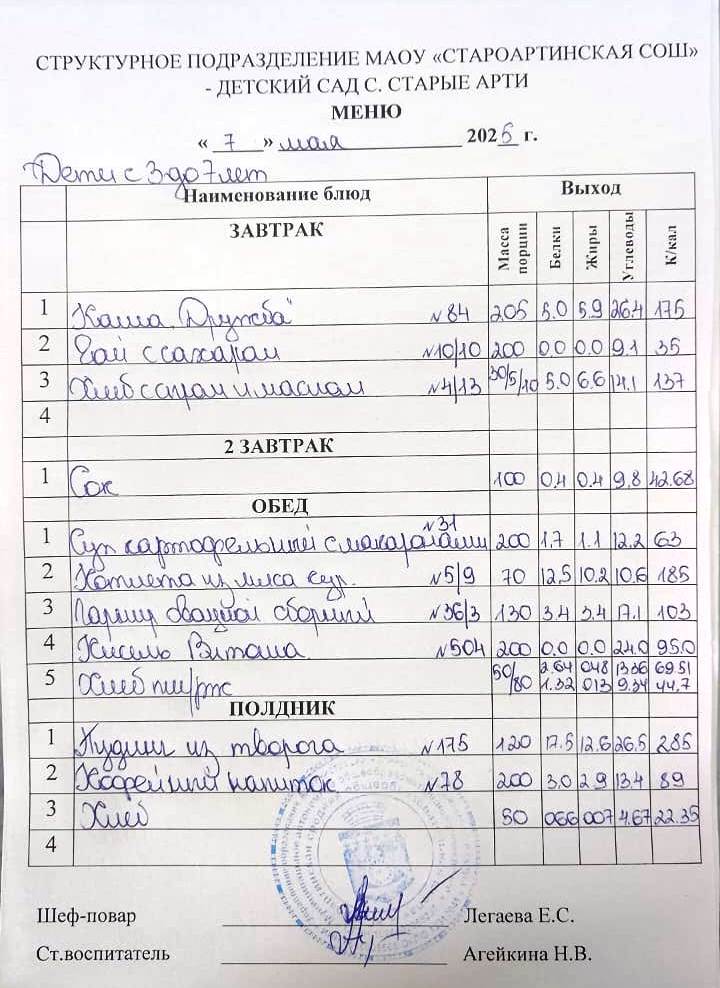 СТРУКТУРНОЕ ПОДРАЗДЕЛЕНИЕ МАОУ «СТАРОАРТИНСКАЯ СОШ»
- ДЕТСКИЙ САД С. СТАРЫЕ АРТИ
МЕНЮ
« 7 » мая 2025 г.
Дети с 3-до 7 лет
Наименование блюд Выход
ЗАВТРАК Масса порции Белки Жиры Углеводы К/кал
1 Каша „Дружба" №84 205 5.0 5.9 26.4 175
2 Чай с сахаром №10/10 200 0.0 0.0 9.1 35
3 Хлеб с сыром и маслом №4/13 30/5/10 5.0 6.6 14.1 137
4
2 ЗАВТРАК
1 Сок 100 0.4 0.4 9.8 42.68
ОБЕД
1 Суп картофельный с макаронами №31 200 1.7 1.1 12.2 63
2 Котлета из мяса кур. №5/9 70 12.5 10.2 10.6 185
3 Гарнир овощной сборный №36/3 130 3.4 3.4 17.1 103
4 Кисель Витоша №504 200 0.0 0.0 24.0 95.0
5 Хлеб пш/рж 50/80 2.64 048 13.36 69.51
1.32 013 9.34 44.7
ПОЛДНИК
1 Пудинг из творога №175 120 17.5 12.6 26.5 285
2 Кофейный напиток №78 200 3.0 2.9 13.4 89
3 Хлеб 50 066 007 4.67 22.35
4
Шеф-повар Легаева Е.С.
Ст.воспитатель Агейкина Н.В.